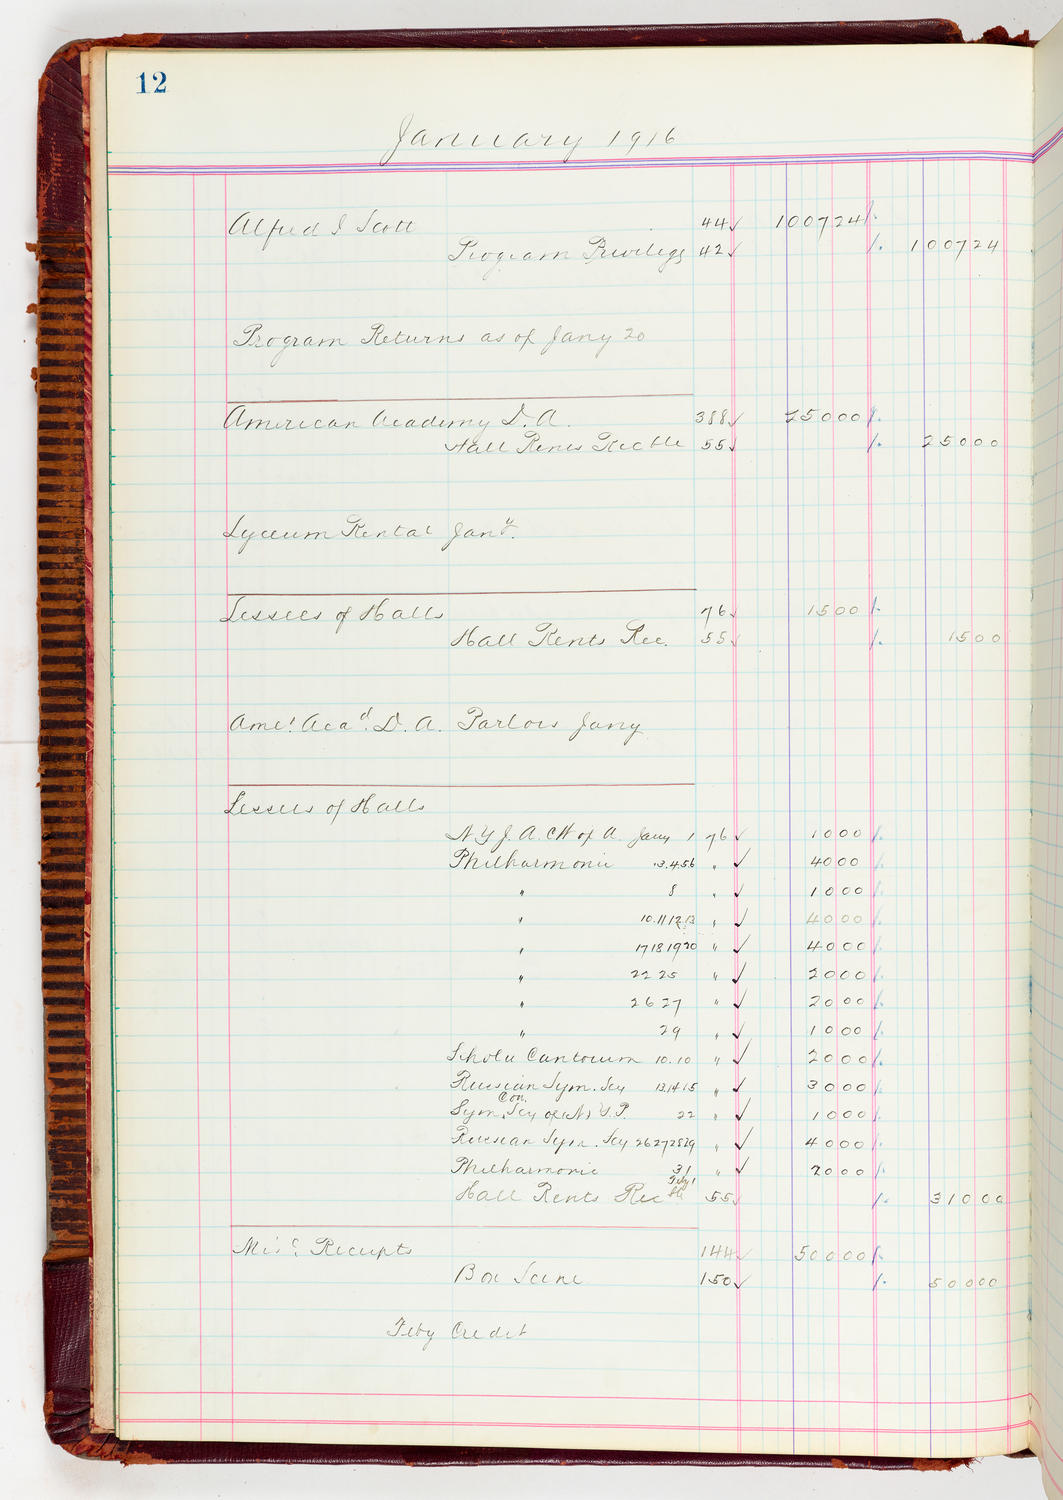 12
January 1916
Alfred J Scott 44 ✓ 1007 24
Program Privilege 42 ✓ 1007 24
Program Returns as of Jany 20
American Academy D. A. 388 ✓ 250 00
Hall Rents Rec ble 55 ✓ 250 00
Lyceum Rental Jany.
Lessees of Halls 76 ✓ 15 00
Hall Rents Rec. 55 ✓ 15 00
Ame! Acad. D. A. Parlors Jany
Lessees of Halls
N Y J. A. C W of A. Jany 1 76 ✓ 10 00
Philharmonic 3.4.5 6 " ✓ 40 00
" 8 " ✓ 10 00
" 10.11 12.13 " ✓ 40 00
" 17 18 19 20 " ✓ 40 00
" 22 25 " ✓ 20 00
" 26 27 " ✓ 20 00
" 29 " ✓ 10 00
Schola Cantorum 10.10 " ✓ 20 00
Russian Sym. Scy 13.14 15 " ✓ 30 00
Con.
Sym. Scy of N Y. 22 " ✓ 10 00
Russian Sym. Scy 26 27 28 29 " ✓ 40 00
Philharmonic 31 " ✓ 20 00
Feby 1
Hall Rents Rec ble 55 ✓ 310 00
Misc. Receipts 144 ✓ 500 00
Box Scene 150 ✓ 500 00
Feby Credit